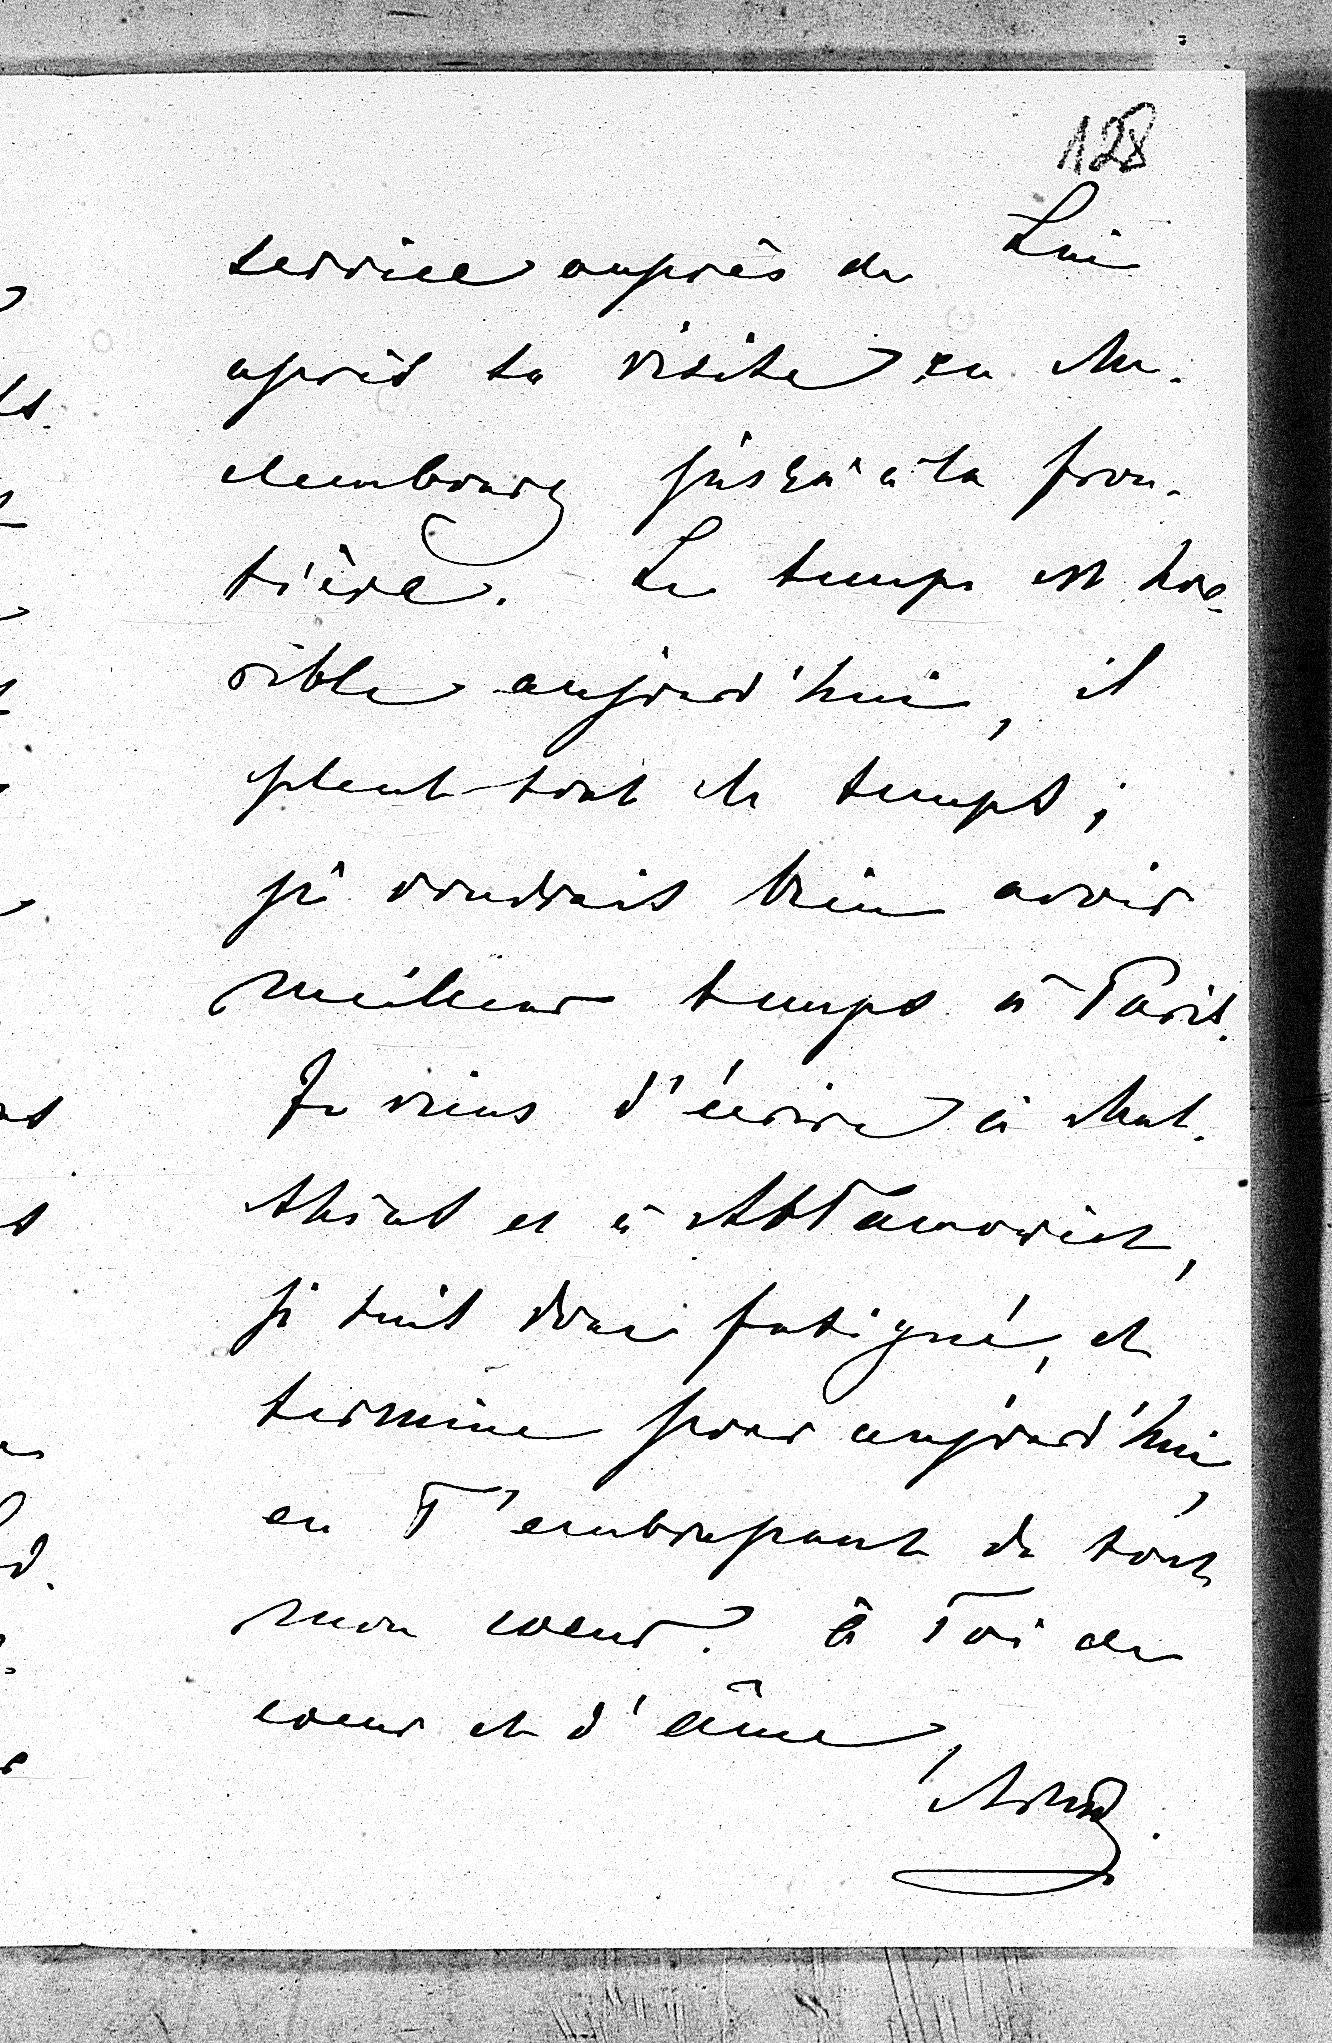 128
service auprès de Lui
après sa visite en Me-
clembourg jusqu'à la fron-
tière. Le temps est hor-
rible aujourd'hui, il
pleut tout le temps;
je voudrais bien avoir
meilleur temps à Paris.
Je viens d'écrire à Mat-
thias et à
je suis donc fatigué, et
termine pour aujourd'hui,
en T'embrassant de tout
mon coeur. à Toi de
coeur et d'âme,